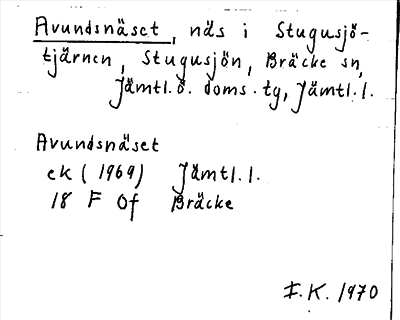 Avundsnäset, näs i Stugusjö-
tjärnen, Stugusjön, Bräcke sn,
Jämtl. ö. doms. tg, Jämtl. l.
Avundsnäset
ek (1969) Jämtl. l.
18 F 0f Bräcke
I. K. 1970